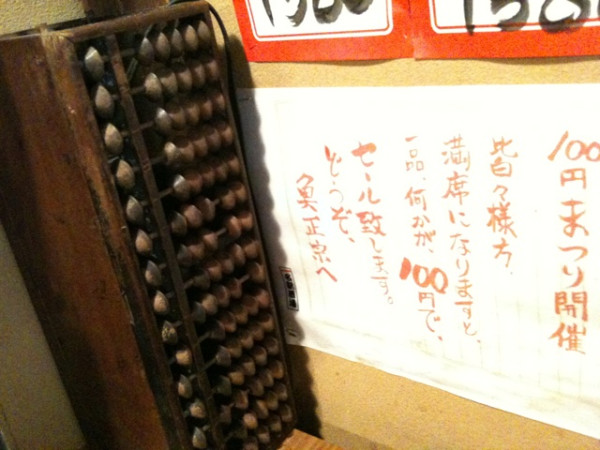 100円まつり開催
皆々様方、
満席になりますと、
一品、何かが、100円で、
セール致します。
どうぞ、
奥正宗へ